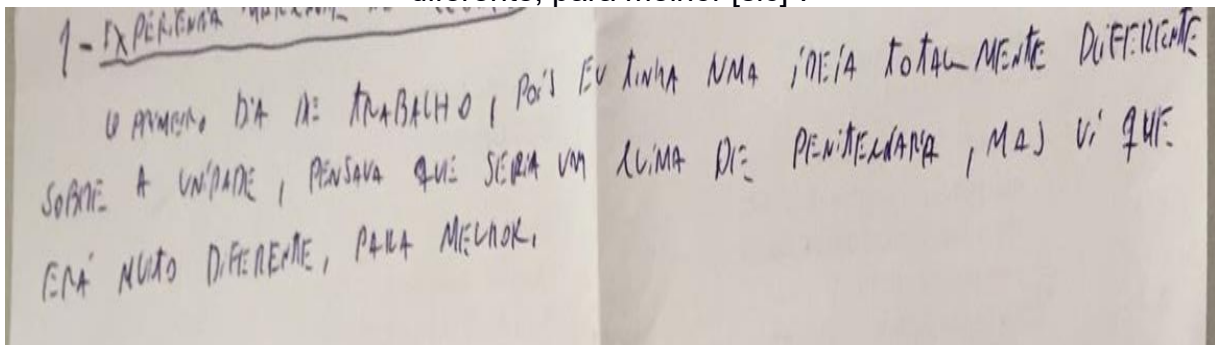 diferente, para melhor [sic]".
1 - EXPERIÊNCIA
O PRIMEIRO DIA DE TRABALHO, POIS EU TINHA UMA IDEIA TOTALMENTE DIFERENTE
SOBRE A UNIDADE, PENSAVA QUE SERIA UM CLIMA DE PENITENCIARIA, MAS VI QUE
ERÁ MUITO DIFERENTE, PARA MELHOR.